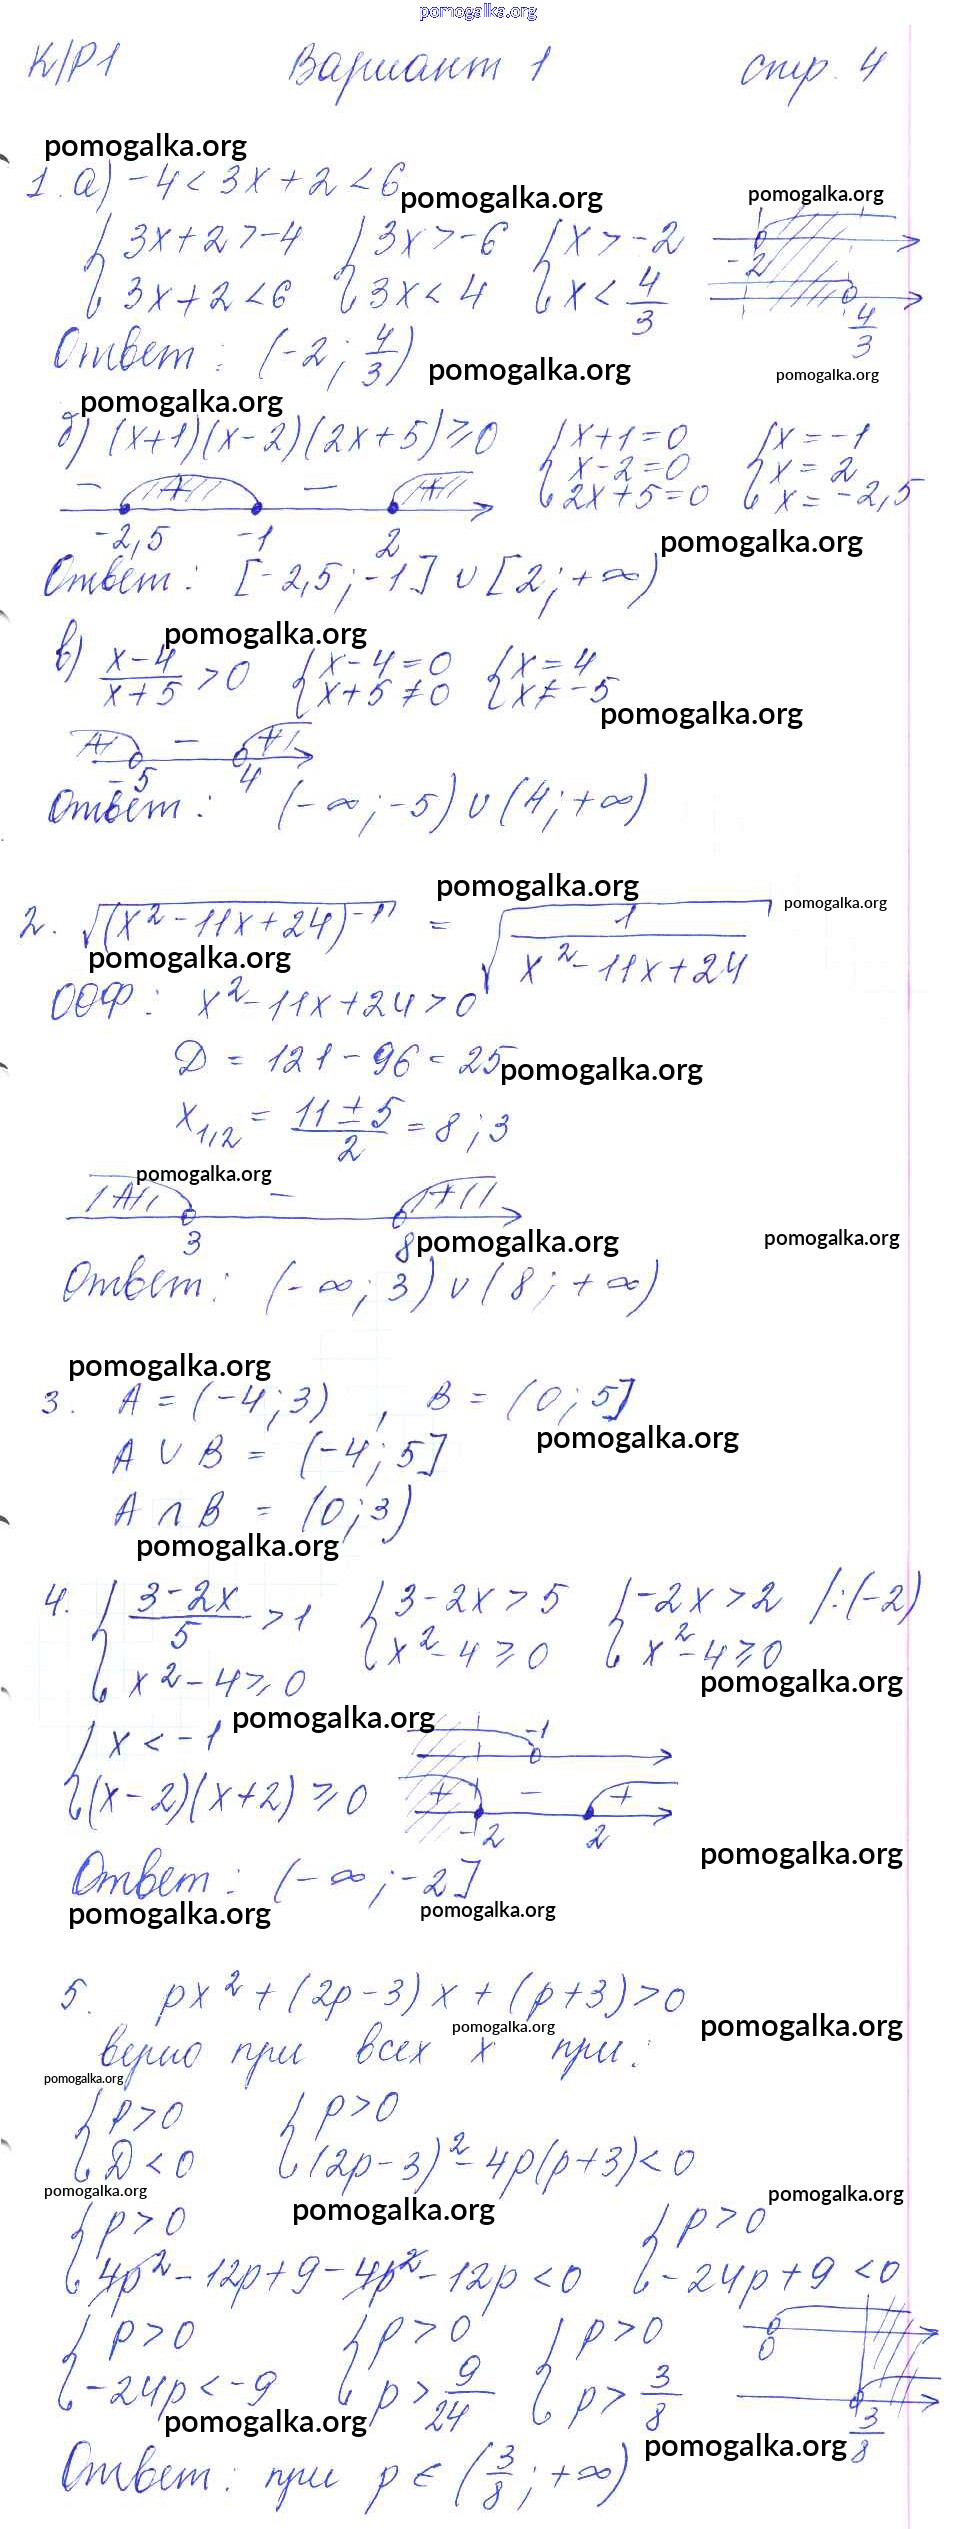 pomogalka.org
К/Р1 Вариант 1 стр. 4
pomogalka.org
1. а) -4 < 3x + 2 < 6
pomogalka.org pomogalka.org
{ 3x + 2 > -4 { 3x > -6 { x > -2
-2
{ 3x + 2 < 6 { 3x < 4 { x < 4/3
4/3
Ответ : (-2 ; 4/3)
pomogalka.org pomogalka.org
pomogalka.org
б) (x+1)(x-2)(2x+5) ≥ 0 { x+1=0 { x = -1
{ x-2=0 { x = 2
{ 2x+5=0 { x = -2,5
- + - +
-2,5 -1 2
pomogalka.org
Ответ : [-2,5 ; -1] ∪ [2 ; +∞)
pomogalka.org
в) (x-4)/(x+5) > 0 { x-4=0 { x = 4
{ x+5≠0 { x ≠ -5
pomogalka.org
+ - +
-5 4
Ответ : (-∞ ; -5) ∪ (4 ; +∞)
pomogalka.org
2. √((x² - 11x + 24)⁻¹) = √(1/(x² - 11x + 24))
pomogalka.org
pomogalka.org
ООФ : x² - 11x + 24 > 0
Д = 121 - 96 = 25
pomogalka.org
x₁,₂ = (11 ± 5)/2 = 8 ; 3
pomogalka.org
+ - +
3 8
pomogalka.org pomogalka.org
Ответ : (-∞ ; 3) ∪ (8 ; +∞)
pomogalka.org
3. A = (-4 ; 3) , B = (0 ; 5]
pomogalka.org
A ∪ B = (-4 ; 5]
A ∩ B = (0 ; 3)
pomogalka.org
4. { (3-2x)/5 > 1 { 3-2x > 5 { -2x > 2 /:(-2)
{ x² - 4 ≥ 0 { x² - 4 ≥ 0 { x² - 4 ≥ 0
pomogalka.org
pomogalka.org
{ x < -1
-1
{ (x-2)(x+2) ≥ 0
+ - +
-2 2
pomogalka.org
Ответ : (-∞ ; -2]
pomogalka.org pomogalka.org
5. px² + (2p-3)x + (p+3) > 0
pomogalka.org pomogalka.org
верно при всех x при :
pomogalka.org
{ p > 0 { p > 0
{ Д < 0 { (2p-3)² - 4p(p+3) < 0
pomogalka.org pomogalka.org pomogalka.org
{ p > 0 { p > 0
{ 4p² - 12p + 9 - 4p² - 12p < 0 { -24p + 9 < 0
{ p > 0 { p > 0 { p > 0
0
{ -24p < -9 { p > 9/24 { p > 3/8
3/8
pomogalka.org pomogalka.org
Ответ : при p ∈ (3/8 ; +∞)